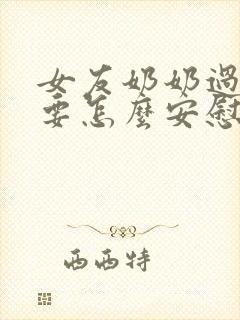 女友奶奶過
要怎麼安慰
西西特